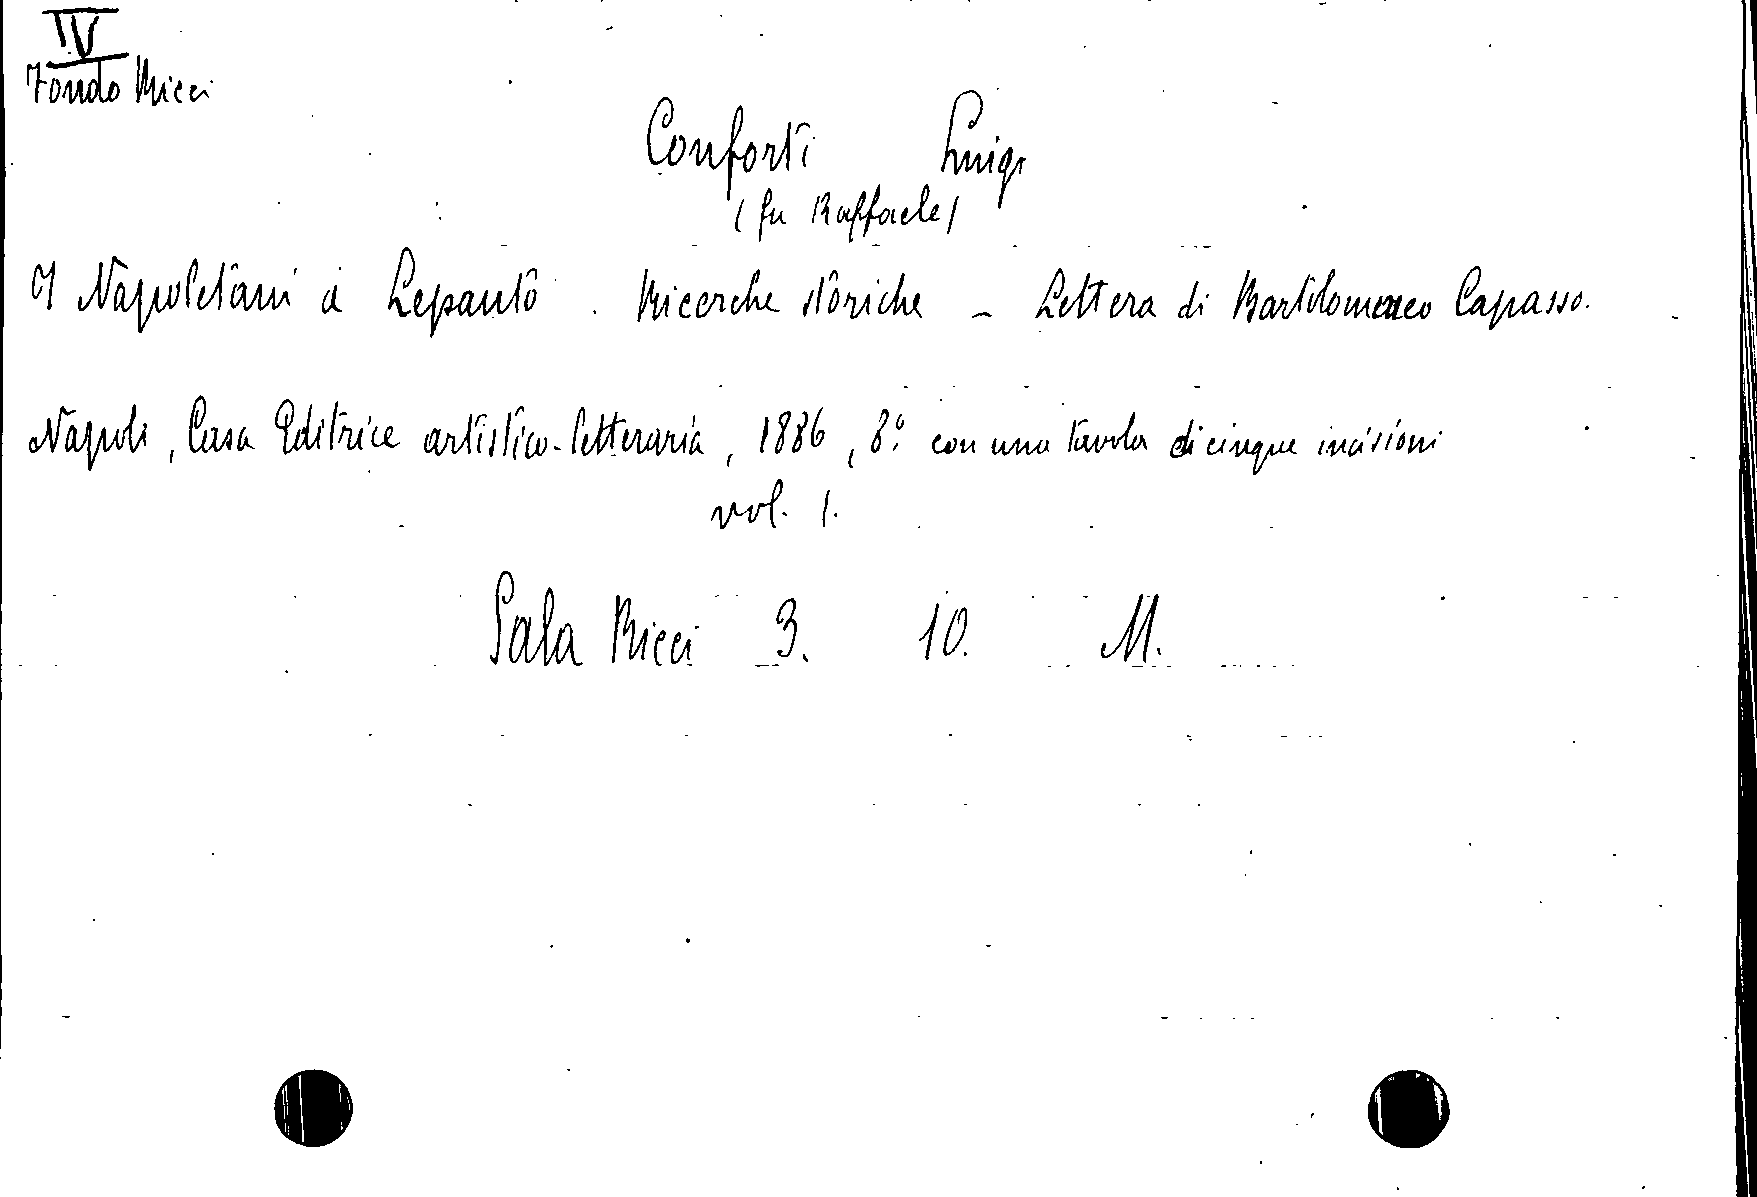 IV
Fondo Ricci
Conforti Luigi
(fu Raffaele)
I Napoletani a Lepanto. Ricerche storiche - Lettera di Bartolomeo Capasso.
Napoli, Casa Editrice artistico-letteraria, 1886, 8º. con una tavola di cinque incisioni
vol. 1.
Sala Ricci 3. 10. M.